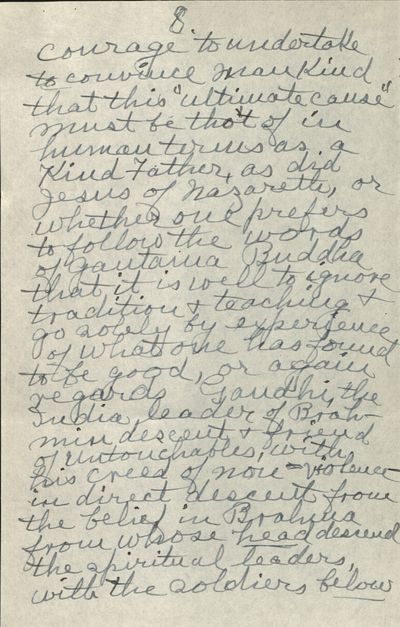 8
courage to undertake
to convince mankind
that this "ultimate cause"
must be thot of in
human terms as a
Kind Father, as did
Jesus of Nazareth, or
whether one prefers
to follow the words
of Gautama Buddha
that it is well to ignore
tradition & teaching &
go solely by experience
of what one has found
to be good, or again
regards Gandhi, the
India leader of Brah-
min descent & friend
of untouchables, with
his creed of non-violence
in direct descent from
the belief in Brahma
from whose head descend
the spiritual leaders,
with the soldiers below